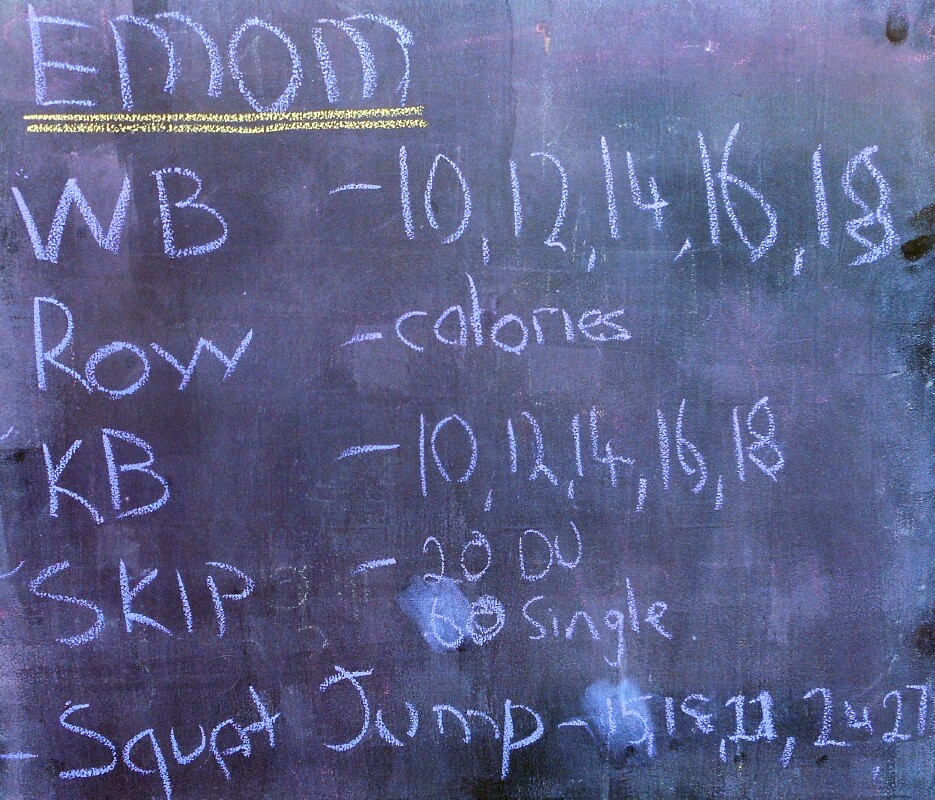 Emom
WB - 10, 12, 14, 16, 18
Row - calories
KB - 10, 12, 14, 16, 18
SKIP - 20 DU
60 Single
- Squat Jump - 15, 18, 21, 24, 27